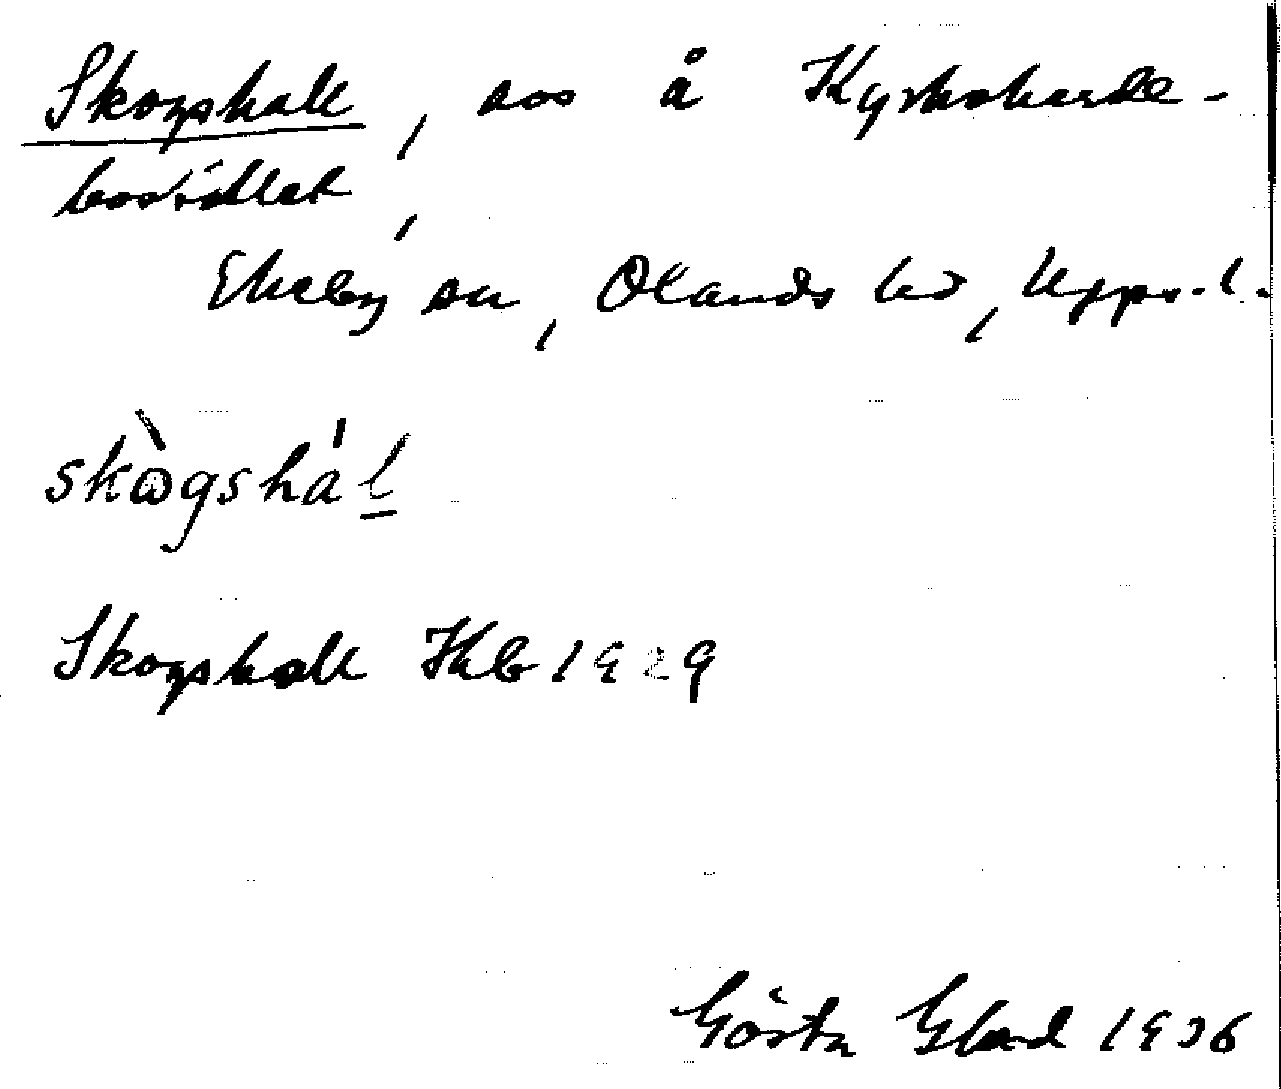 Skogshall, sos å Kyrkoherde-
bostället,
Ekeby sn, Olands hd, Upps. l.
skògshál
Skogshall Hkb 1929
Gösta Blad 1936